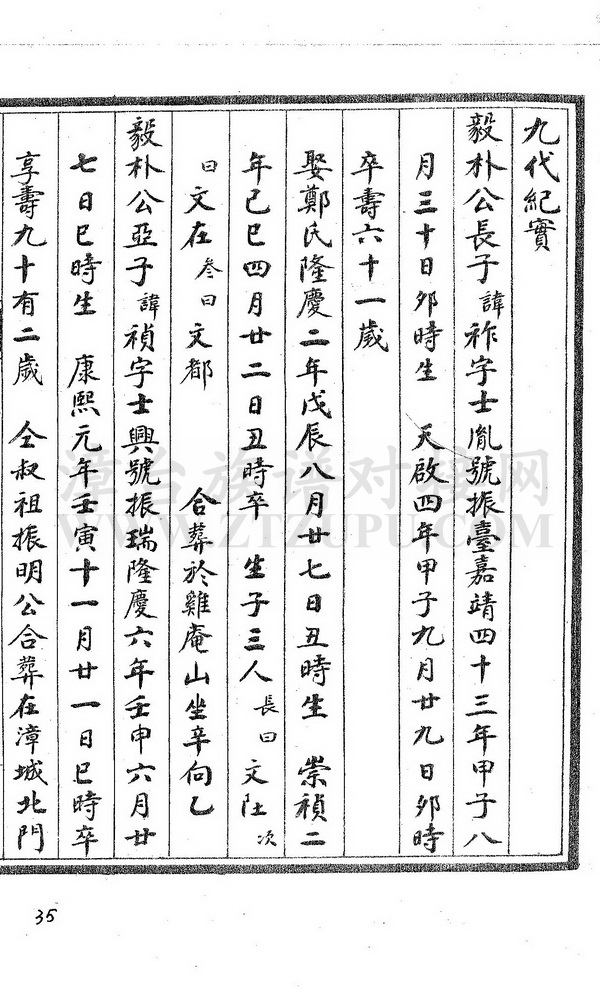 九代紀實
毅朴公長子諱祚字士胤號振臺嘉靖四十三年甲子八
月三十日夘時生 天啟四年甲子九月廿九日夘時
卒壽六十一歲
娶鄭氏隆慶二年戊辰八月廿七日丑時生 崇禎二
年己巳四月廿二日丑時卒 生子三人長曰文 次
曰文在叅曰文都 合葬於雞庵山坐辛向乙
毅朴公亞子諱禎字士興號振瑞隆慶六年壬申六月廿
七日巳時生 康熙元年壬寅十一月廿一日巳時卒
享壽九十有二歲 仝叔祖振明公合葬在漳城北門
漳台族谱对接网
WWW.ZTZUPU.COM
35